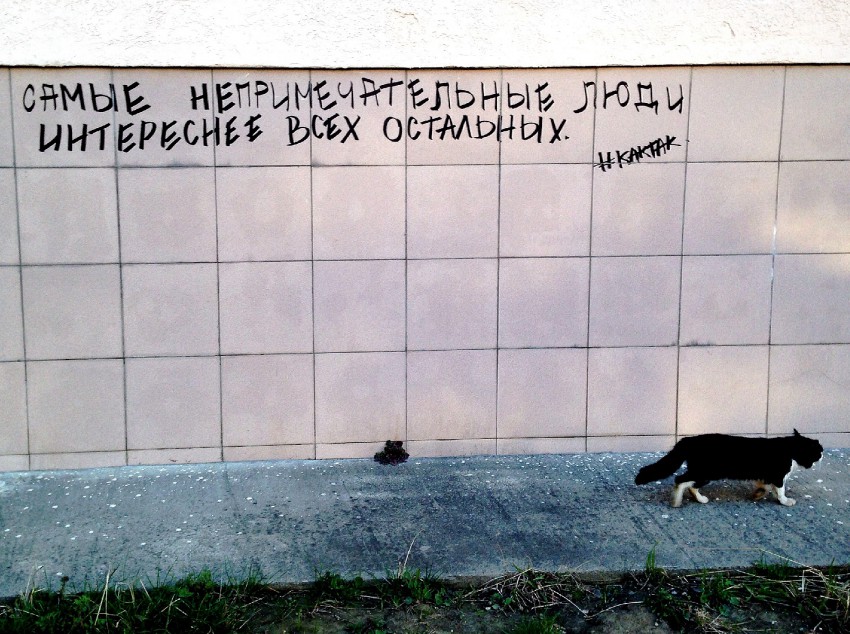 САМЫЕ НЕПРИМЕЧАТЕЛЬНЫЕ ЛЮДИ
ИНТЕРЕСНЕЕ ВСЕХ ОСТАЛЬНЫХ.
#КАКТАК